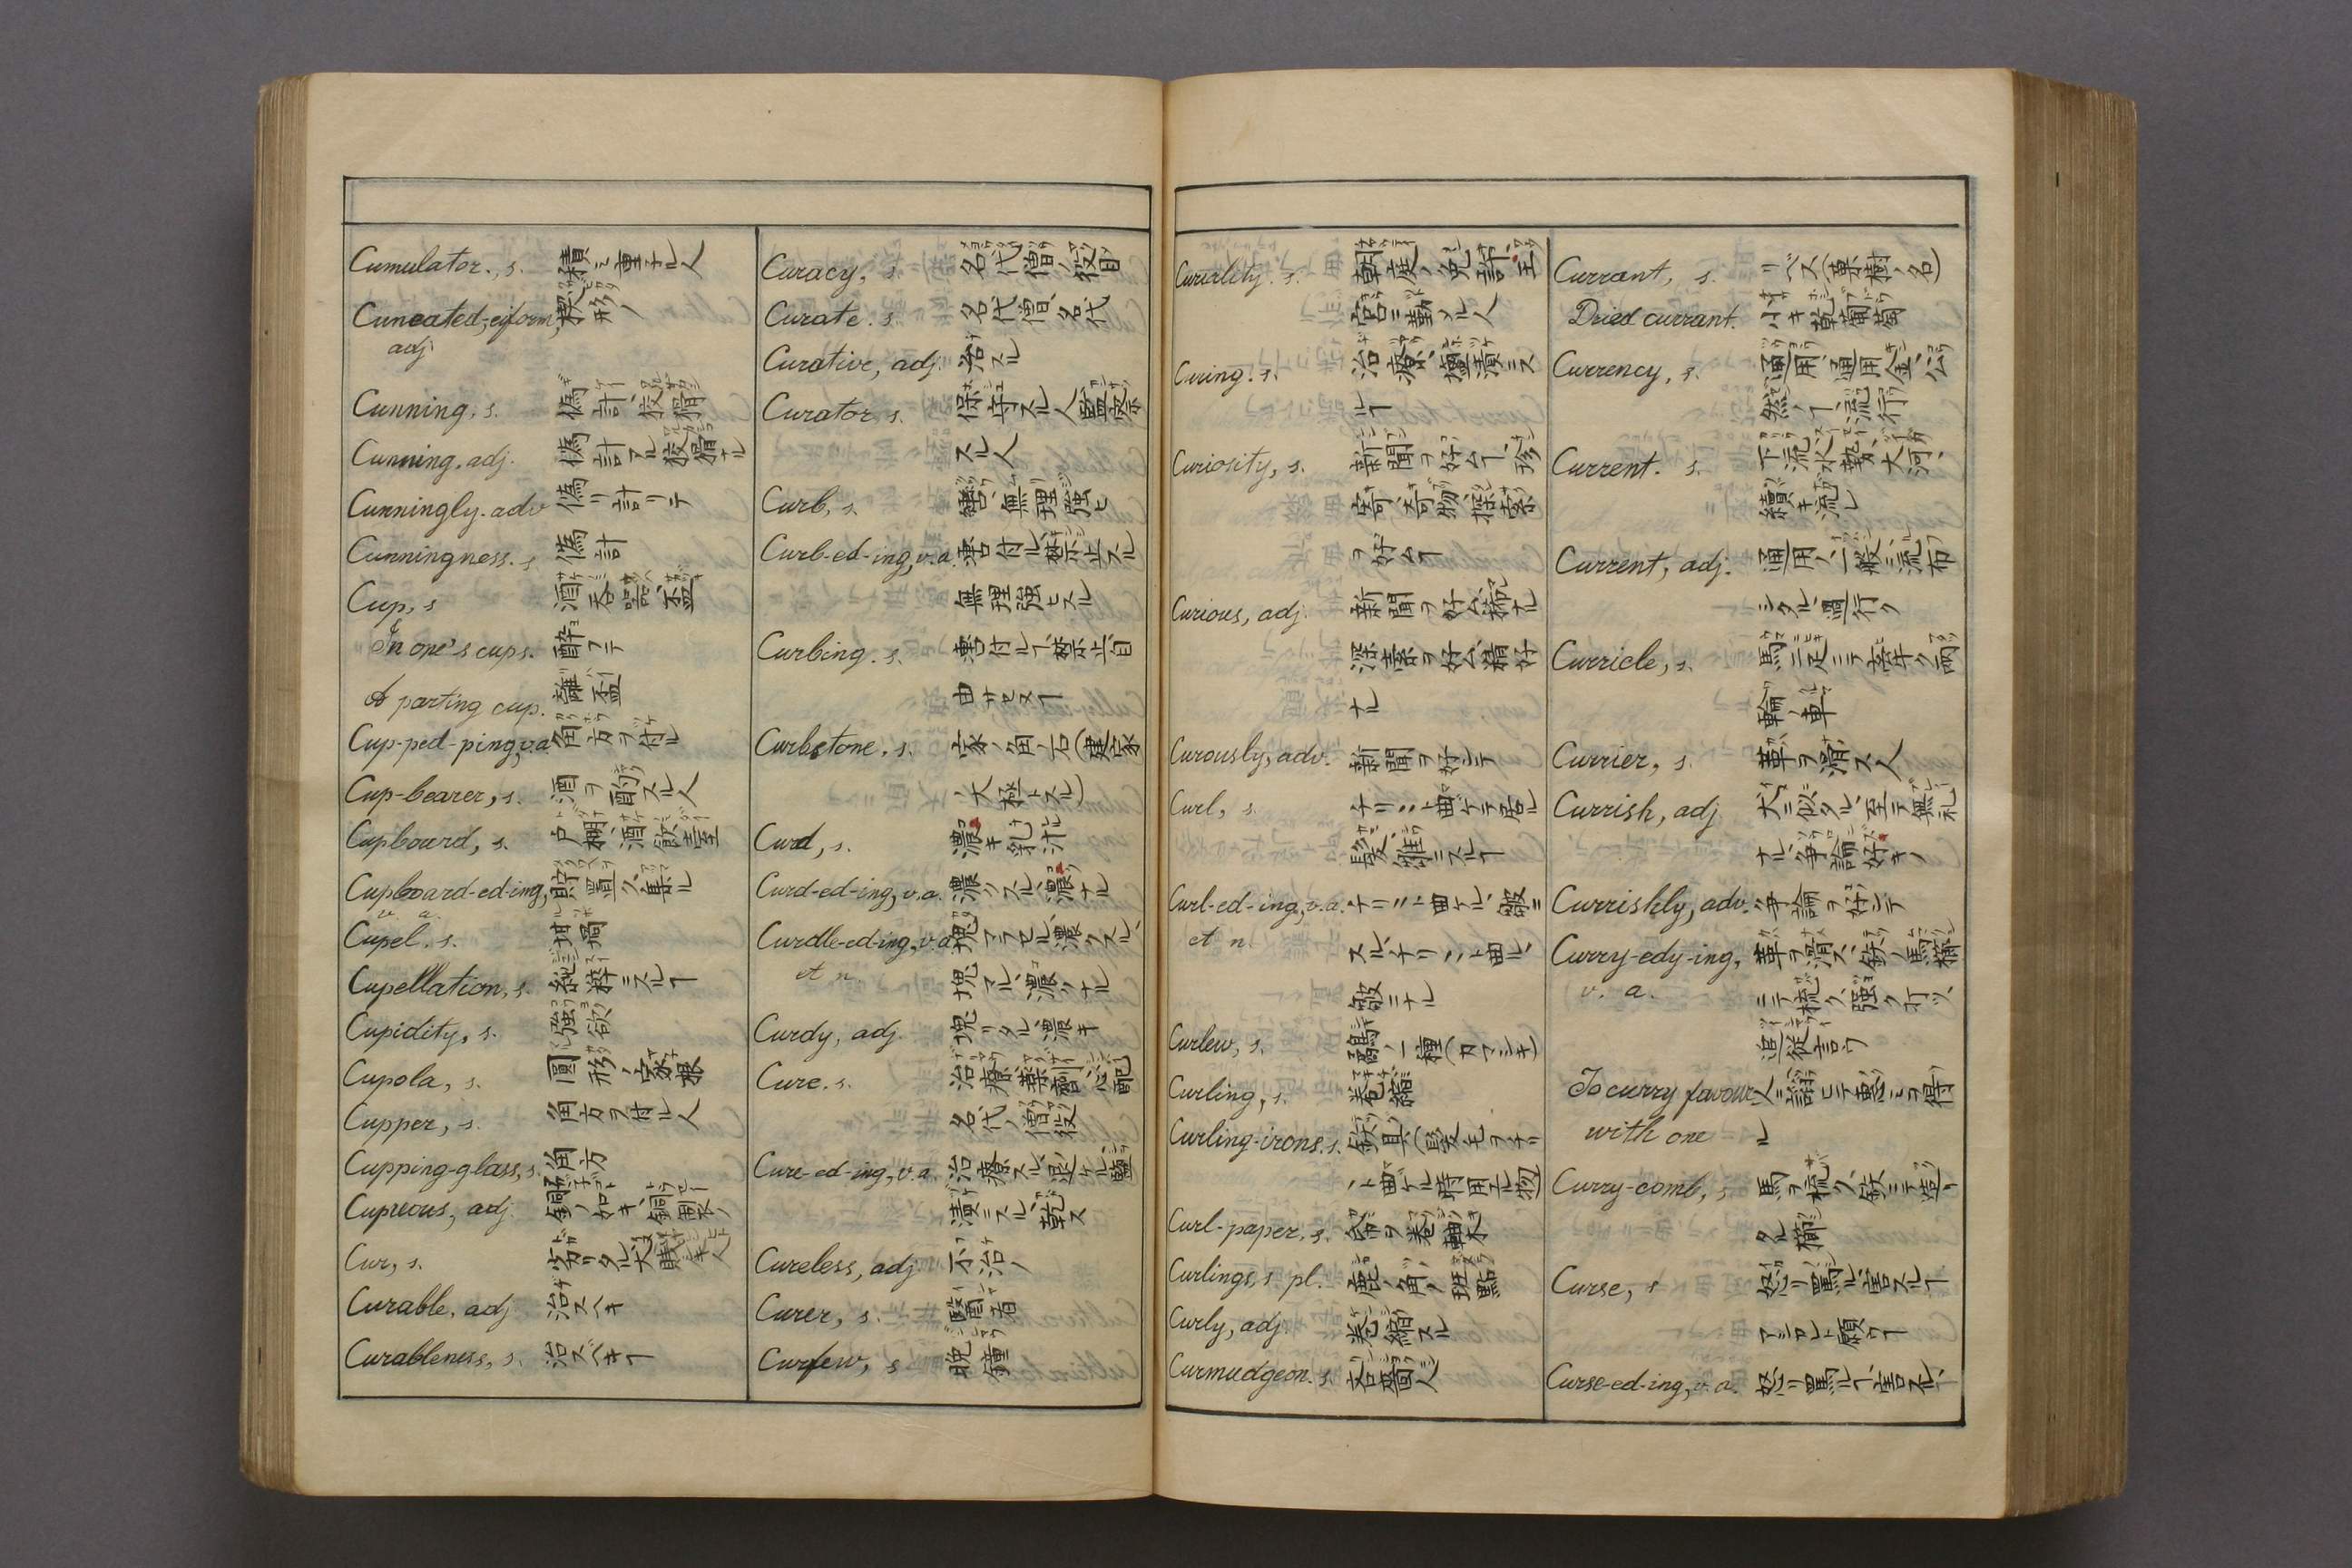 Cumulator., s. 積ミ重子ル人
Cuneated,-eiform, 楔形ノ
adj.
Cunning, s. 偽計、狡猾
Cunning, adj. 偽計アル、狡猾ナル
Cunningly. adv 偽リ計リテ
Cunningness. s 偽計
Cup, s 酒呑、盃
In one's cups. 酔フテ
A parting cup. 離盃
Cup-ped-ping, v.a 角方ヲ付ル
Cup-bearer, s. 酒ヲ酌スル人
Cupboard, s. 戸棚、酒飲室
Cupboard-ed-ing, 貯ヘ置ク、集ル
v. a.
Cupel. s. 坩堝
Cupellation, s. 純粋ニスルヿ
Cupidity, s. 強欲
Cupola, s. 圓形ノ家根
Cupper, s. 角方ヲ付ル人
Cupping-glass, s. 角方
Cupreous, adj. 銅ノ如キ、銅製ノ
Cur, s. 犬、賤シキ人
Curable, adj 治スヘキ
Curableness, s. 治スヘキヿ
Curacy, s. 名代僧ノ役目
Curate. s. 名代僧、名代
Curative, adj. 治スル
Curator, s. 保守スル人、監察
スル人
Curb, s. 轡、無理強ヒ
Curb-ed-ing, v.a. 轡付ル、禁止スル
無理強ヒスル
Curbing. s. 轡付ルヿ、禁止、自
由サセヌヿ
Curbstone, s. 家ノ角ノ石(建家
ノ大極トスル)
Curd, s. 濃キ乳汁
Curd-ed-ing, v.a. 濃クスル、濃クナル
Curdle-ed-ing, v.a 塊マラセル、濃クスル、
et n. 塊マル、濃クナル
Curdy, adj. 塊リタル、濃キ
Cure. s. 治療、薬劑、心配
名代ノ僧役
Cure-ed-ing, v.a. 治療スル、避ケル、鹽
漬ニスル、乾ス
Cureless, adj 不治ノ
Curer, s. 醫者
Curfew, s 晩鐘
Curiality. s. 朝廷ノ免許、全
宮ニ勤ル人
Curing. s. 治療、鹽漬ニス
ルヿ
Curiosity, s. 新聞ヲ好ムヿ、珍
寄、奇物、探索
ヲ好ムヿ
Curious, adj. 新聞ヲ好ム、稀ナル
深索ヲ好ム、精好
ナル
Curously, adv. 新聞ヲ好ンテ
Curl, s. チリヽヽト曲ケテ居ル
髪、皺ニスルヿ
Curl-ed-ing, v.a. チリヽヽト曲ケル、皺ニ
et n. スル、チリヽヽト曲ル、
皺ニナル
Curlew, s. 鳥ノ一種
Curling, s. 卷縮
Curling-irons. s. 鉄具(髪毛ヲチリ
ヽヽト曲ケル時用ユル物
Curl-paper, s. 卷軸木
Curlings, s pl. 鹿ノ角ノ班點
Curly, adj. 卷縮スル
Curmudgeon. s. 吝嗇人
Currant, s. リベス(菓樹ノ名)
Dried currant. 小キ乾葡萄
Currency, s. 通用、通用金、公
然ノヿ、流行
Current. s. 下流、水勢、大河、
續キ流レ
Current, adj. 通用ノ、一般ニ流布
シタル、過行ク
Curricle, s. 馬二疋ニテ牽ク両
輪ノ車
Currier, s. 革ヲ滑ス人
Currish, adj 犬ニ似タル、至テ無礼
ナル、争論好キノ
Currishly, adv. 争論ヲ好ンテ
Curry-edy-ing, 革ヲ滑ス、鉄ノ馬櫛
v. a. ニテ梳ク、強ク打ツ、
追従言ウ
To curry favour 人ニ諂ヒテ恵ミヲ得
with one ル
Curry-comb, s 馬ヲ梳ク鉄ニテ造リ
タル櫛
Curse, s 怒リ罵ル、害スルヿ
アシカレト願ウヿ
Curse-ed-ing, v. a. 怒リ罵ルヿ、害スル、